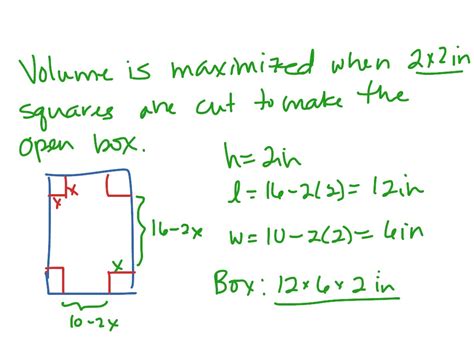 Volume is maximized when 2x2 in
squares are cut to make the
open box.
h = 2in
l = 16-2(2) = 12in
w = 10-2(2) = 6in
Box: 12 x 6 x 2 in
x
x
x
16-2x
10-2x